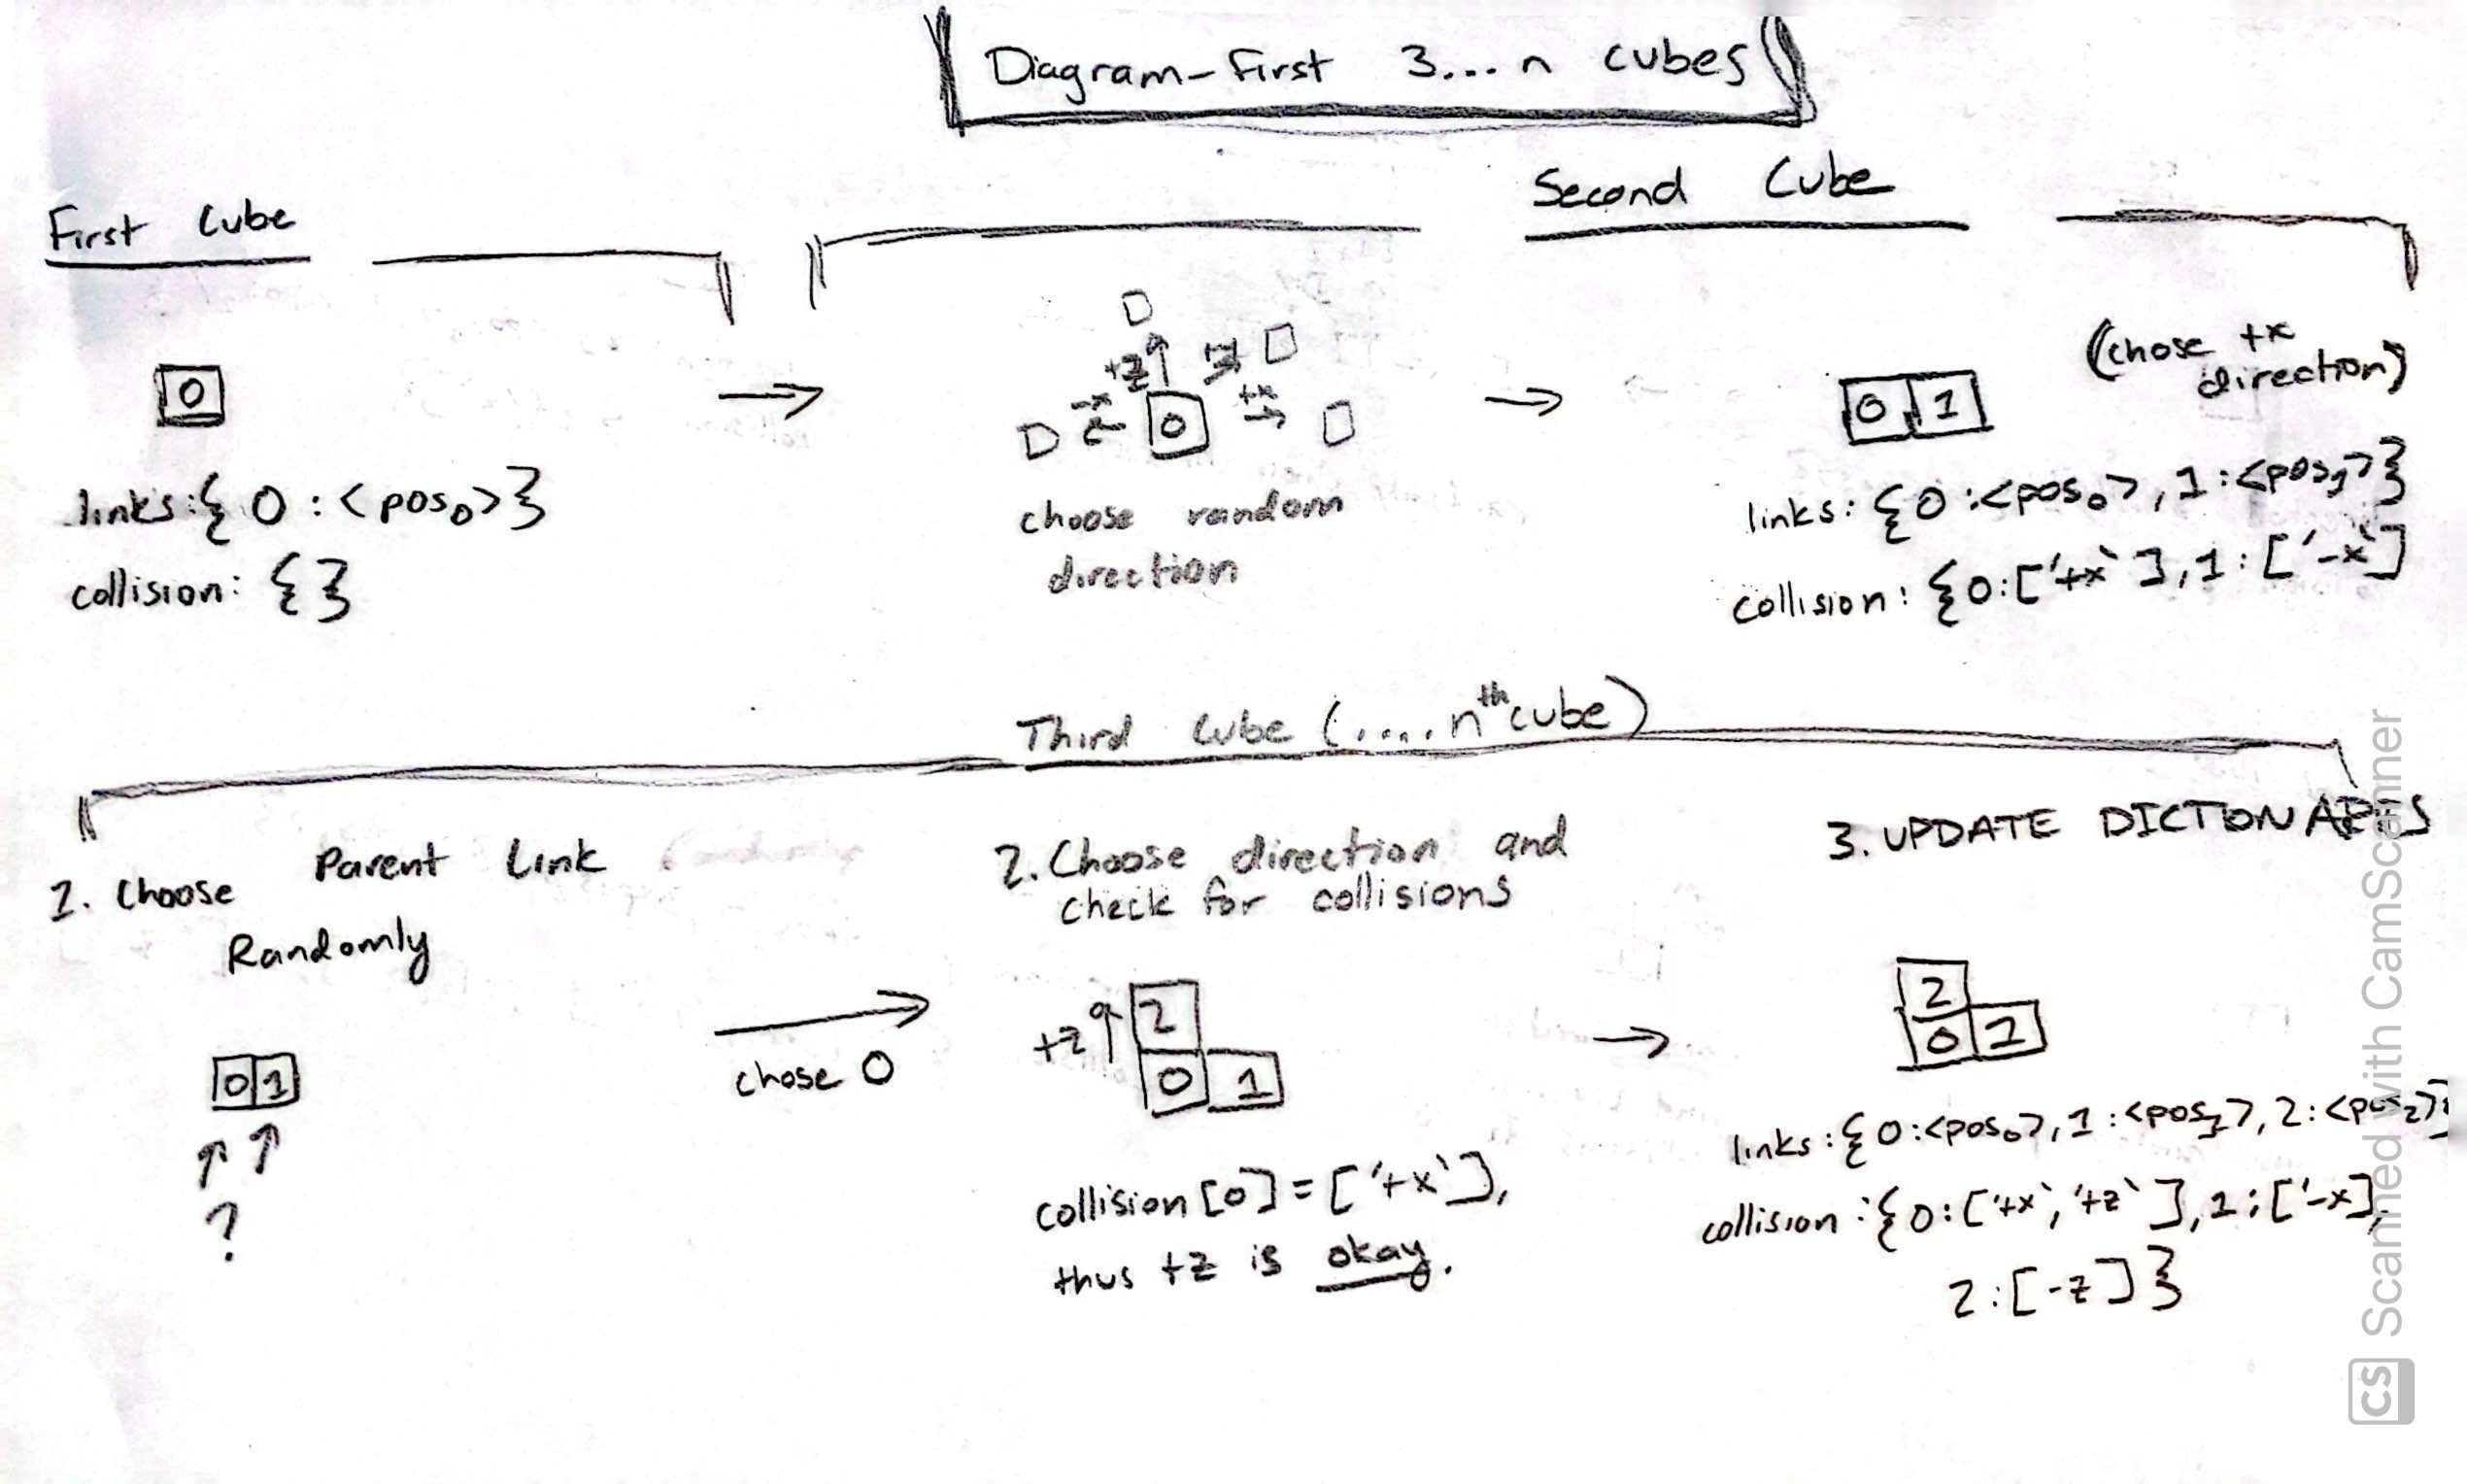 Diagram - First 3... n cubes
First Cube
Second Cube
0
links: { 0 : <pos₀> }
collision: { }
+z
-x
0
+x
choose random
direction
(chose +x
direction)
0 1
links: { 0 : <pos₀>, 1 : <pos₁> }
collision: { 0: ['+x`], 1: ['-x`]
Third Cube (.... nᵗʰ cube)
1. Choose Parent Link
Randomly
0 1
?
chose 0
2. Choose direction and
check for collisions
+z
2
0 1
collision [0] = ['+x`],
thus +z is okay.
3. UPDATE DICTIONARIES
2
0 1
links: { 0:<pos₀>, 1:<pos₁>, 2:<pos₂>}
collision: { 0: ['+x`, '+z`], 1: ['-x],
2: [-z] }
CS Scanned with CamScanner